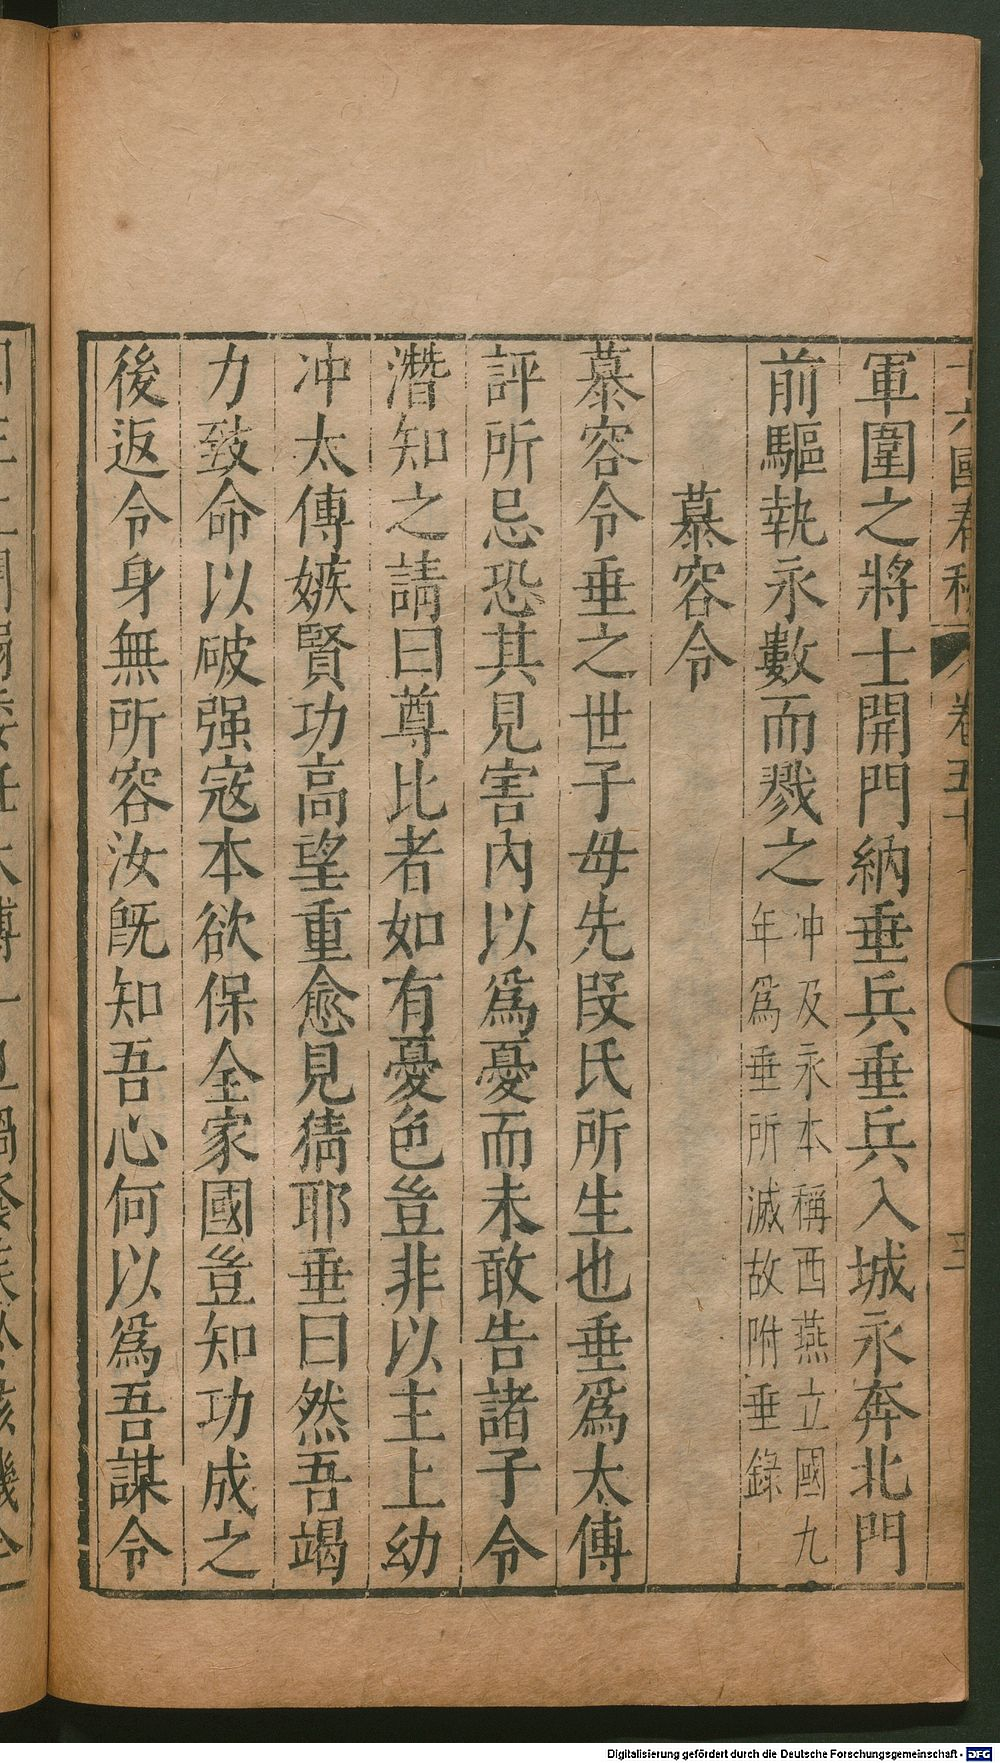 軍圍之將士開門納垂兵垂兵入城永奔北門
前驅執永數而戮之
冲及永本稱西燕立國九
年爲垂所滅故附垂錄
慕容令
慕容令垂之世子母先段氏所生也垂爲太傅
評所忌恐其見害內以爲憂而未敢告諸子令
潛知之請曰尊比者如有憂色豈非以主上幼
冲太傅嫉賢功高望重愈見猜耶垂曰然吾竭
力致命以破强寇本欲保全家國豈知功成之
後返令身無所容汝旣知吾心何以爲吾謀令
Digitalisierung gefördert durch die Deutsche Forschungsgemeinschaft - DFG